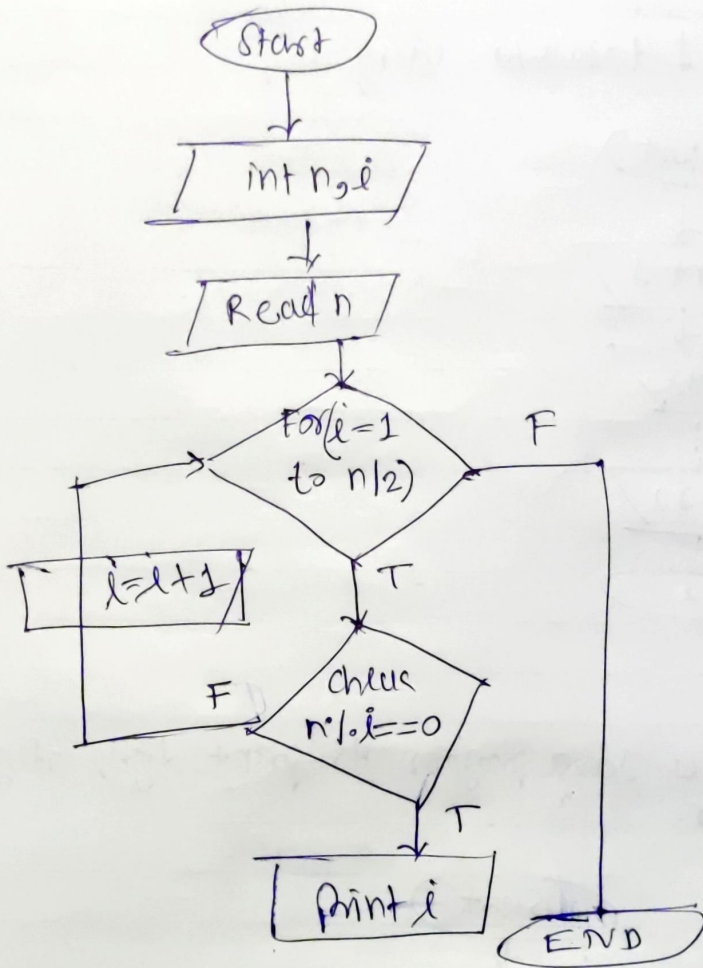 Start
int n, i
Read n
For(i=1
to n/2)
F
T
i=i+1
check
n%i==0
F
T
print i
END